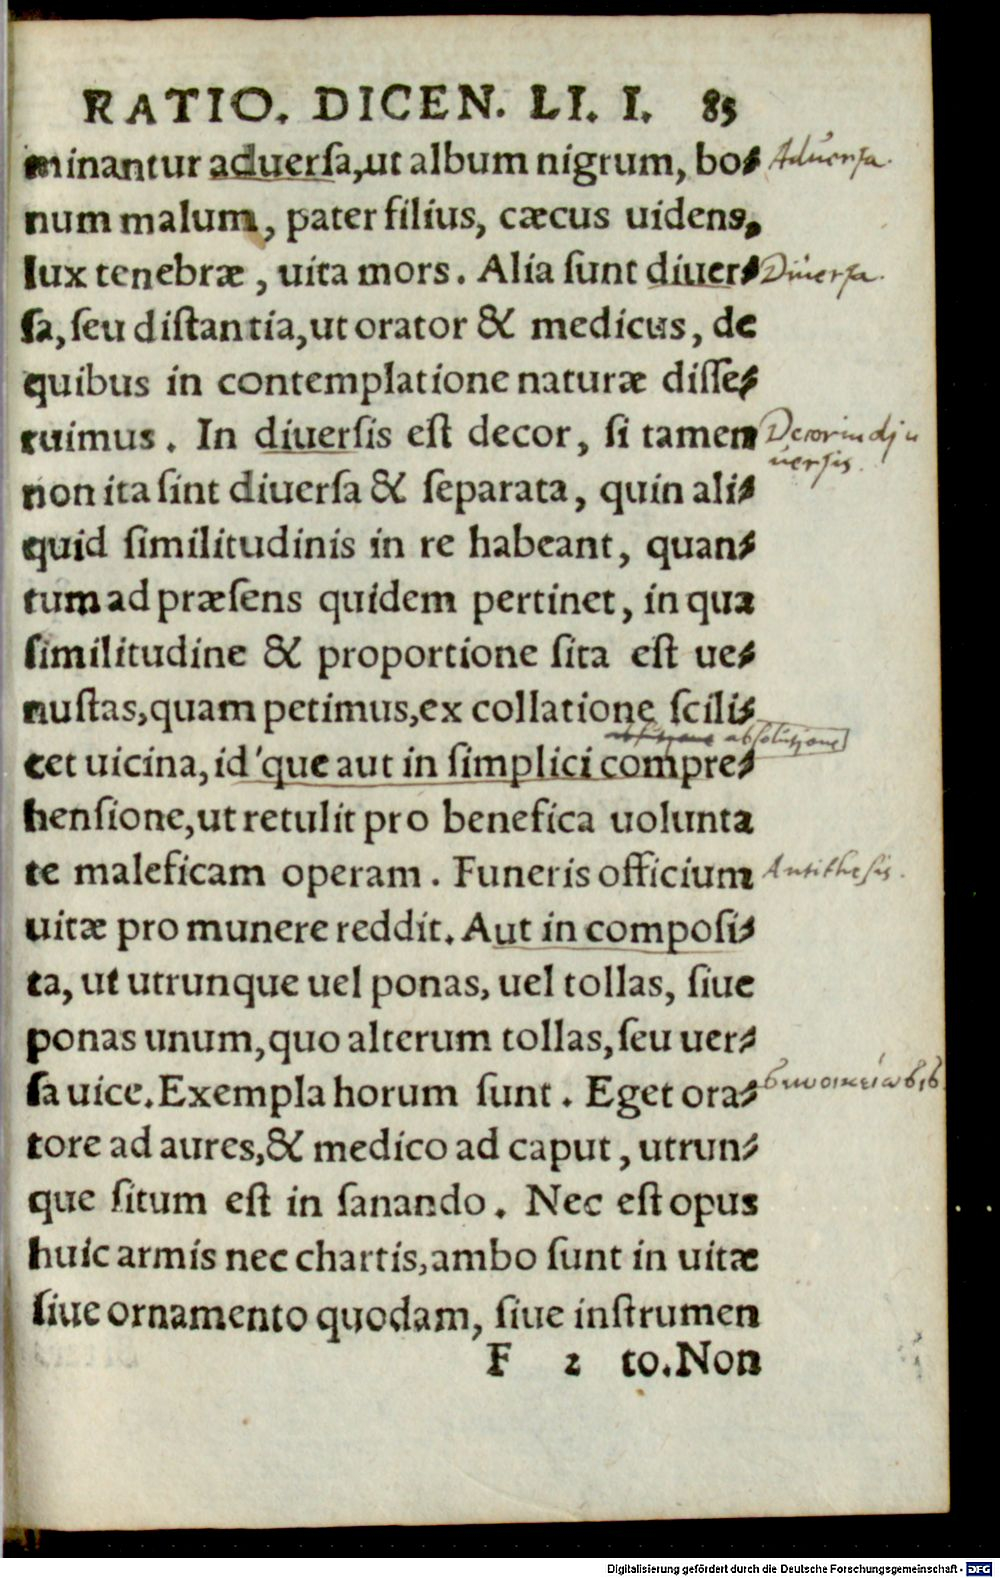 RATIO. DICEN. LI. I. 85
minantur aduerſa, ut album nigrum, bo⸗ Aduerſa.
num malum, pater filius, cæcus uidens,
lux tenebræ, uita mors. Alia ſunt diuer⸗ Diuerſa.
ſa, ſeu diſtantia, ut orator & medicus, de
quibus in contemplatione naturæ diſſe⸗
ruimus. In diuerſis eſt decor, ſi tamen Decor in di
uerſis.
non ita ſint diuerſa & ſeparata, quin ali⸗
quid ſimilitudinis in re habeant, quan⸗
tum ad præſens quidem pertinet, in qua
ſimilitudine & proportione ſita eſt ue⸗
nuſtas, quam petimus, ex collatione ſcili⸗
abſolutione
cet uicina, id'que aut in ſimplici compre⸗
henſione, ut retulit pro benefica uolunta
te maleficam operam. Funeris officium Antitheſis.
uitæ pro munere reddit. Aut in compoſi⸗
ta, ut utrunque uel ponas, uel tollas, ſiue
ponas unum, quo alterum tollas, ſeu uer⸗
ſa uice. Exempla horum ſunt. Eget ora⸗
tore ad aures, & medico ad caput, utrun⸗
que ſitum eſt in ſanando. Nec eſt opus
huic armis nec chartis, ambo ſunt in uitæ
ſiue ornamento quodam, ſiue inſtrumen
F 2 to. Non
Digitalisierung gefördert durch die Deutsche Forschungsgemeinschaft - DFG